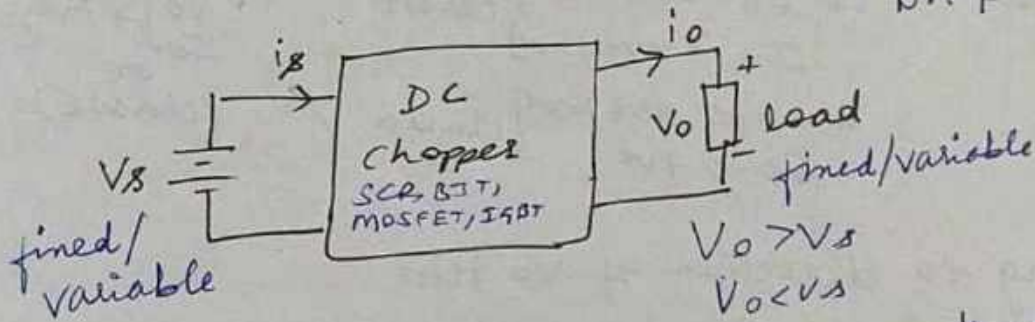 is
io
DC
Chopper
SCR, BJT,
MOSFET, IGBT
Vs
fined/
variable
+
Vo
Load
-
fined/variable
Vo > Vs
Vo < Vs